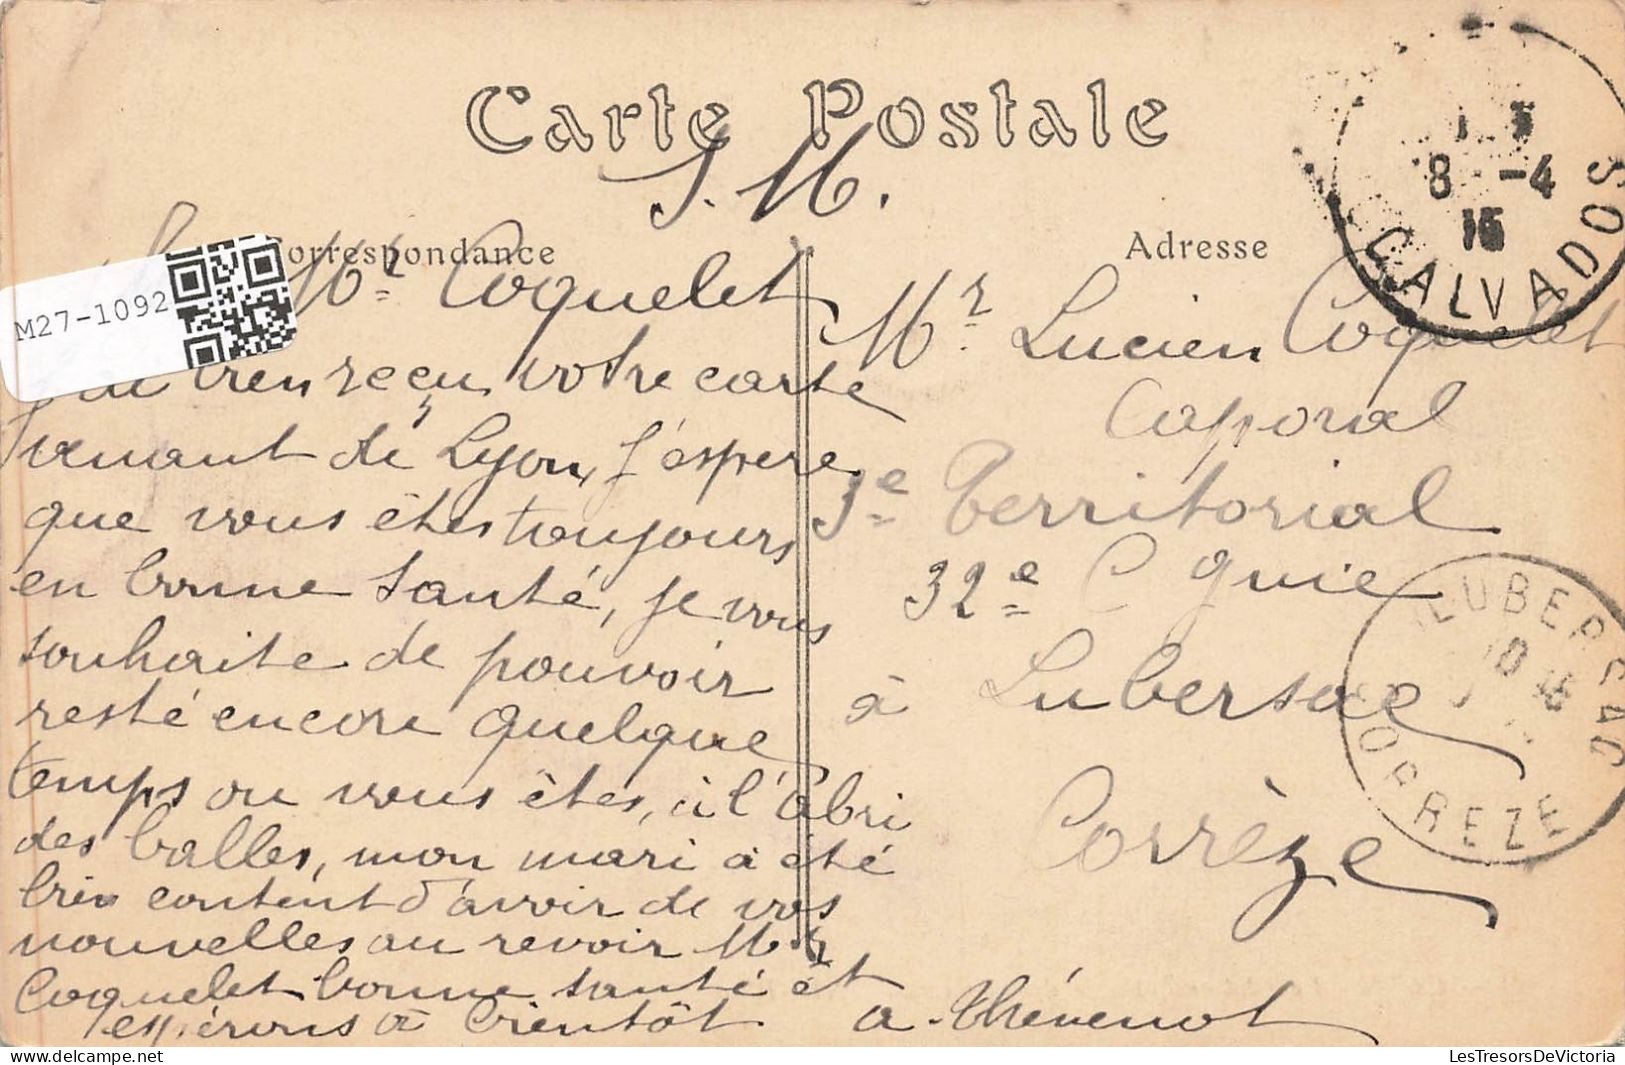 Carte Postale
S. M.
Correspondance
Adresse
Mr Coquelet
J'ai bien reçu votre carte
venant de Lyon, J'éspere
que vous êtes toujours
en bonne santé, je vous
souhaite de pouvoir
resté encore quelque
temps ou vous êtes, à l'abri
des balles, mon mari a été
bien content d'avoir de vos
nouvelles au revoir Mr
Coquelet bonne santé et
espérons à bientôt
a. Thévenot
Mr Lucien Coquelet
Caporal
3e Territorial
32e Cgnie
à Lubersac
Corrèze
8 -4
15
CALVADOS
LUBERSAC
CORREZE
M27-1092
LesTresorsDeVictoria